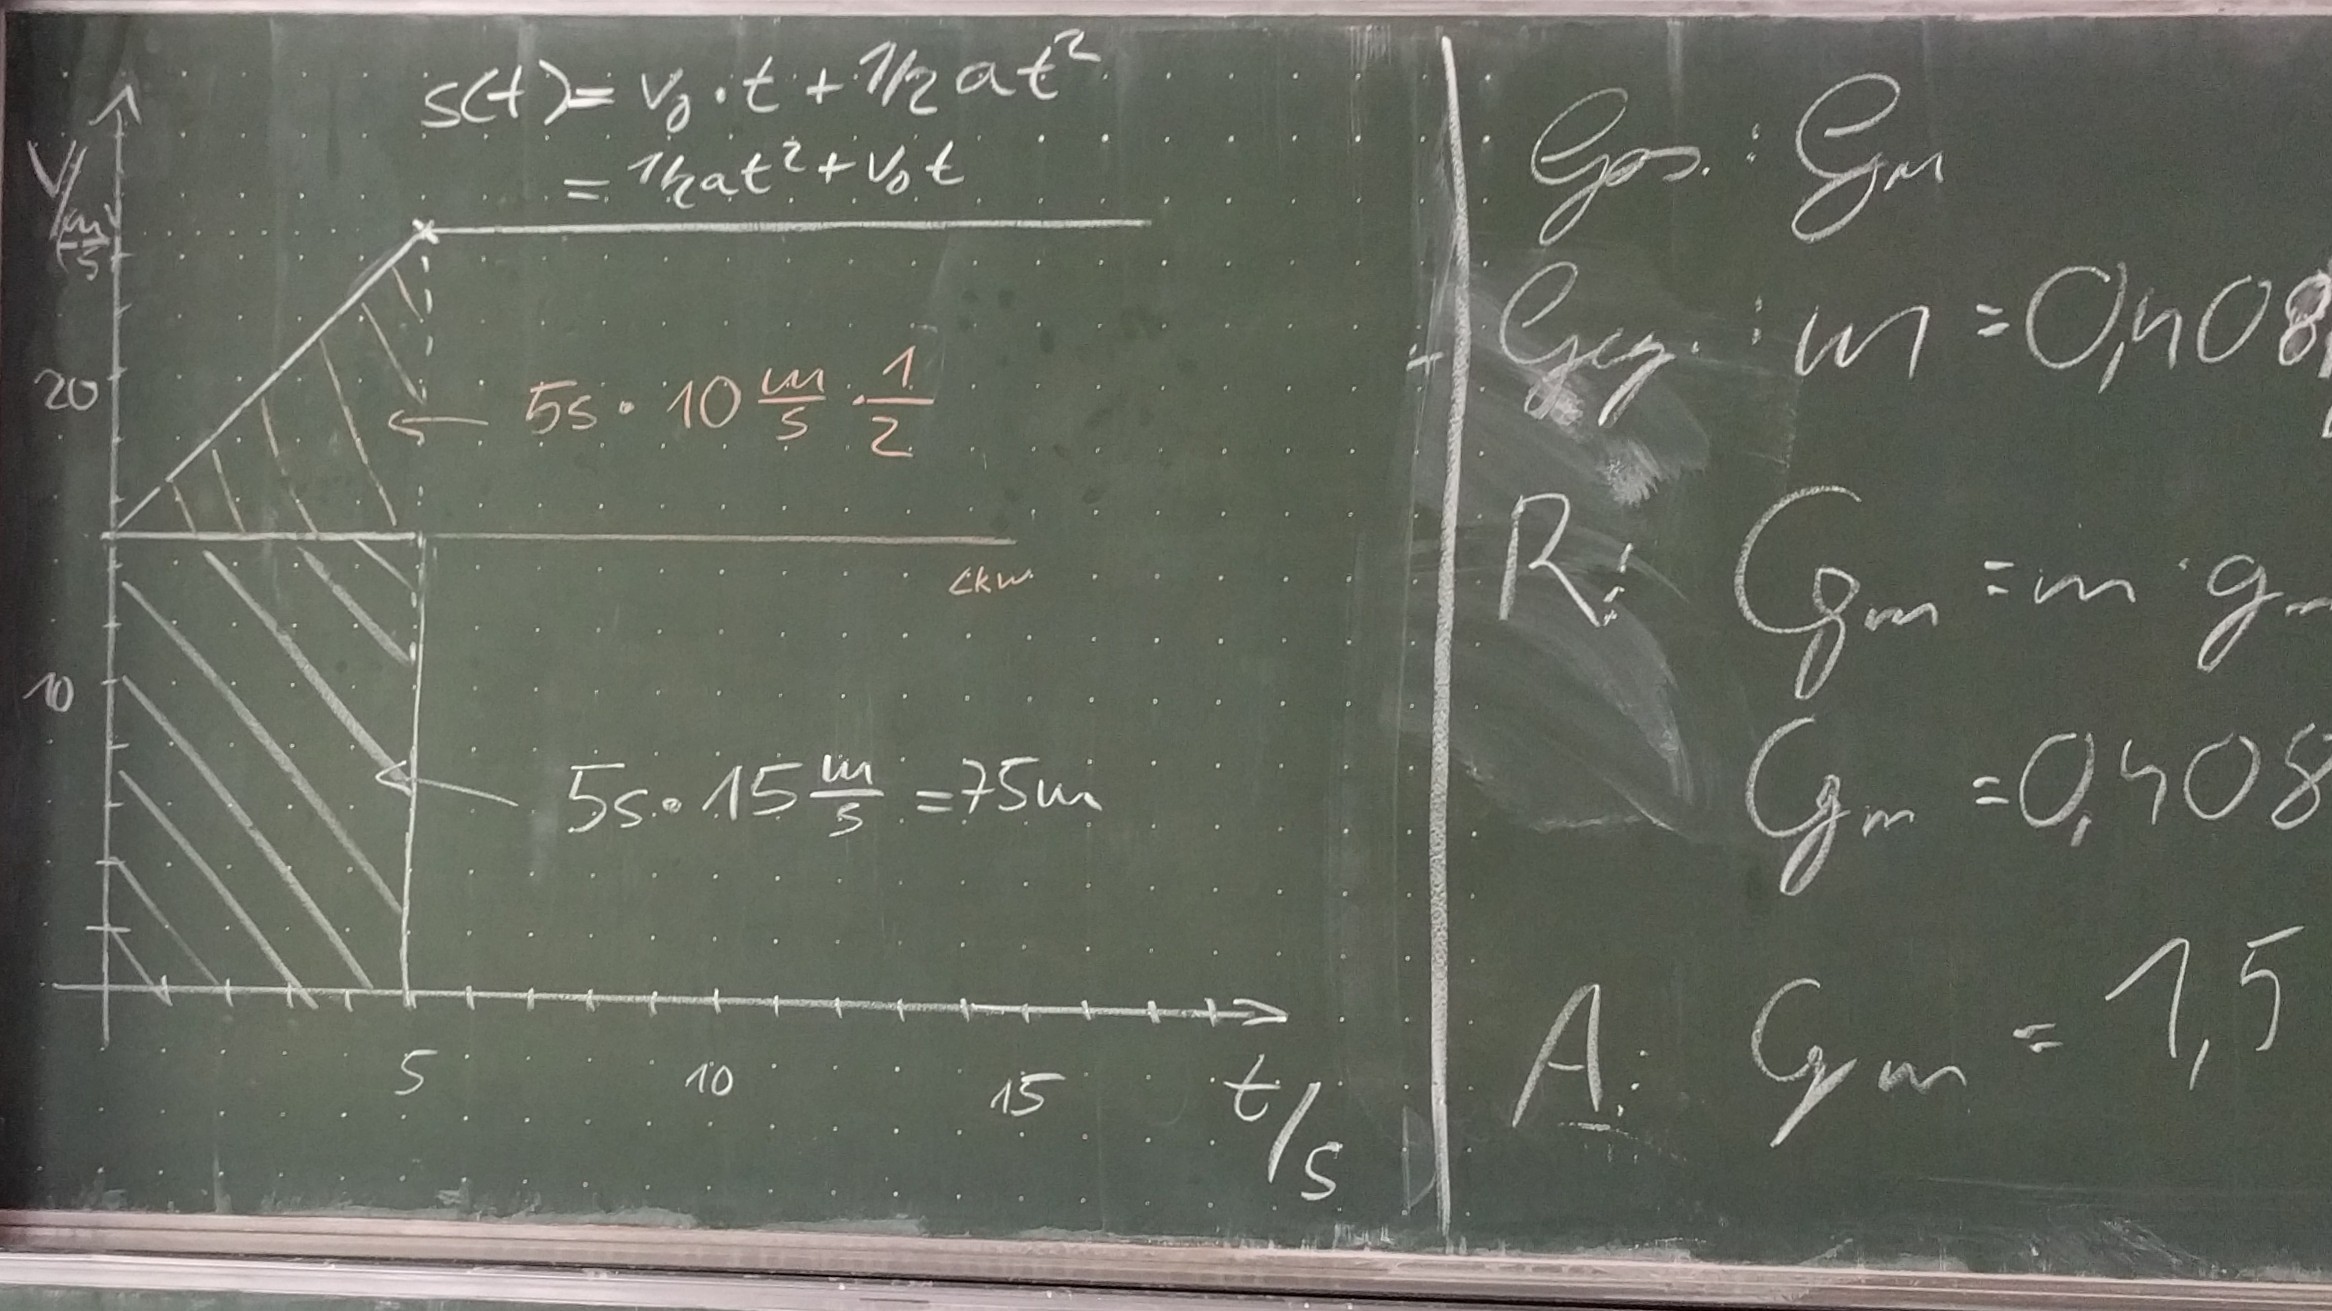 s(t) = v₀ · t + 1/2 at²
= 1/2 at² + v₀t
V/m/s
20
5s · 10 m/s · 1/2
Lkw
10
5s · 15 m/s = 75m
5 10 15 t/s
Ges.: Gm
Geg.: m = 0,408
R: Gm = m · g
Gm = 0,408
A: Gm = 1,5